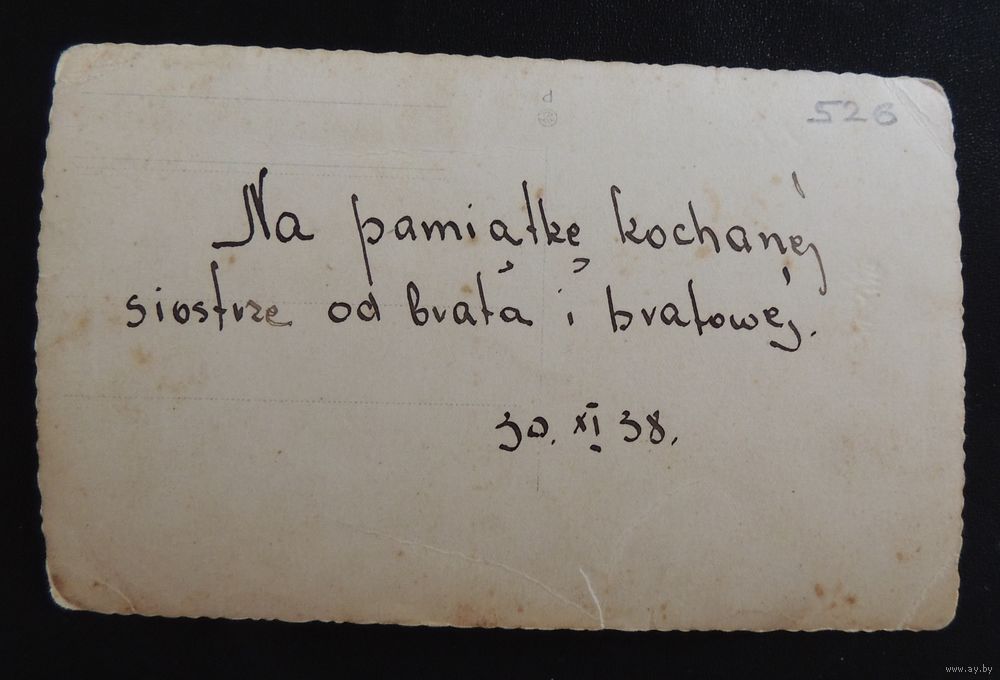 526
Na pamiątkę kochanéj
siostrze od brata i bratowéj.
30. XI 38.
www.ay.by